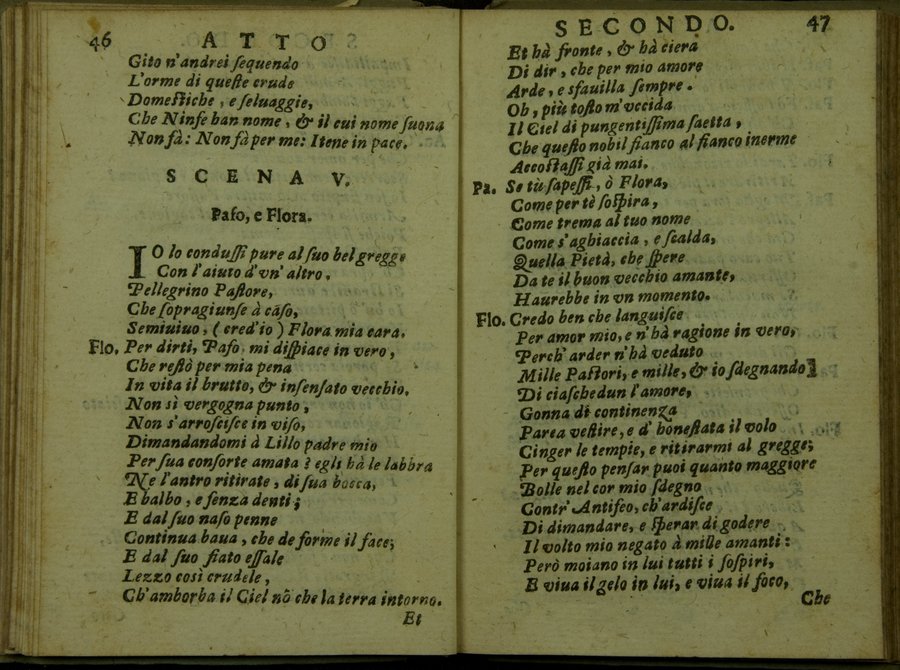 46 ATTO
Gito n'andrei ſequendo
L'orme di queſte crude
Domeſtiche, e ſeluaggie,
Che Ninfe han nome, & il cui nome ſuona
Non fà: Non fà per me: Itene in pace.
SCENA V.
Paſo, e Flora.
IO lo conduſſi pure al ſuo bel gregge
Con l'aiuto d'vn' altro.
Pellegrino Paſtore,
Che ſopragiunſe à cáſo,
Semiuiuo, (cred'io) Flora mia cara.
Flo. Per dirti, Paſo, mi diſpiace in vero,
Che reſtò per mia pena
In vita il brutto, & inſenſato vecchio.
Non sì vergogna punto,
Non s'arroſciſce in viſo,
Dimandandomi à Lillo padre mio
Per ſua conſorte amata? egli hà le labbra
Ne l'antro ritirate, di ſua bocca,
E balbo, e ſenza denti;
E dal ſuo naſo penne
Continua baua, che deforme il face;
E dal ſuo fiato eſſale
Lezzo così crudele,
Ch'amborba il Ciel nõ che la terra intorno.
Et
SECONDO. 47
Et hà fronte, & hà ciera
Di dir, che per mio amore
Arde, e sfauilla ſempre.
Oh, più toſto m'vccida
Il Ciel di pungentiſſima ſaetta,
Che queſto nobil fianco al fianco inerme
Accoſtaſſi già mai.
Pa. Se tù ſapeſſi, ò Flora,
Come per tè ſoſpira,
Come trema al tuo nome
Come s'agbiaccia, e ſcalda,
Quella Pietà, che ſpere
Da te il buon vecchio amante,
Haurebbe in vn momento.
Flo. Credo ben che languiſce
Per amor mio, e n'hà ragione in vero,
Perch' arder n'hà veduto
Mille Paſtori, e mille, & io ſdegnando
Di ciaſchedun l'amore,
Gonna di continenza
Parea veſtire, e d' honeſtata il volo
Cinger le tempie, e ritirarmi al gregge;
Per queſto penſar puoi quanto maggiore
Bolle nel cor mio ſdegno
Contr' Antifeo, ch'ardiſce
Di dimandare, e ſperar di godere
Il volto mio negato à mille amanti:
Però moiano in lui tutti i ſoſpiri,
E viua il gelo in lui, e viua il foco,
Che